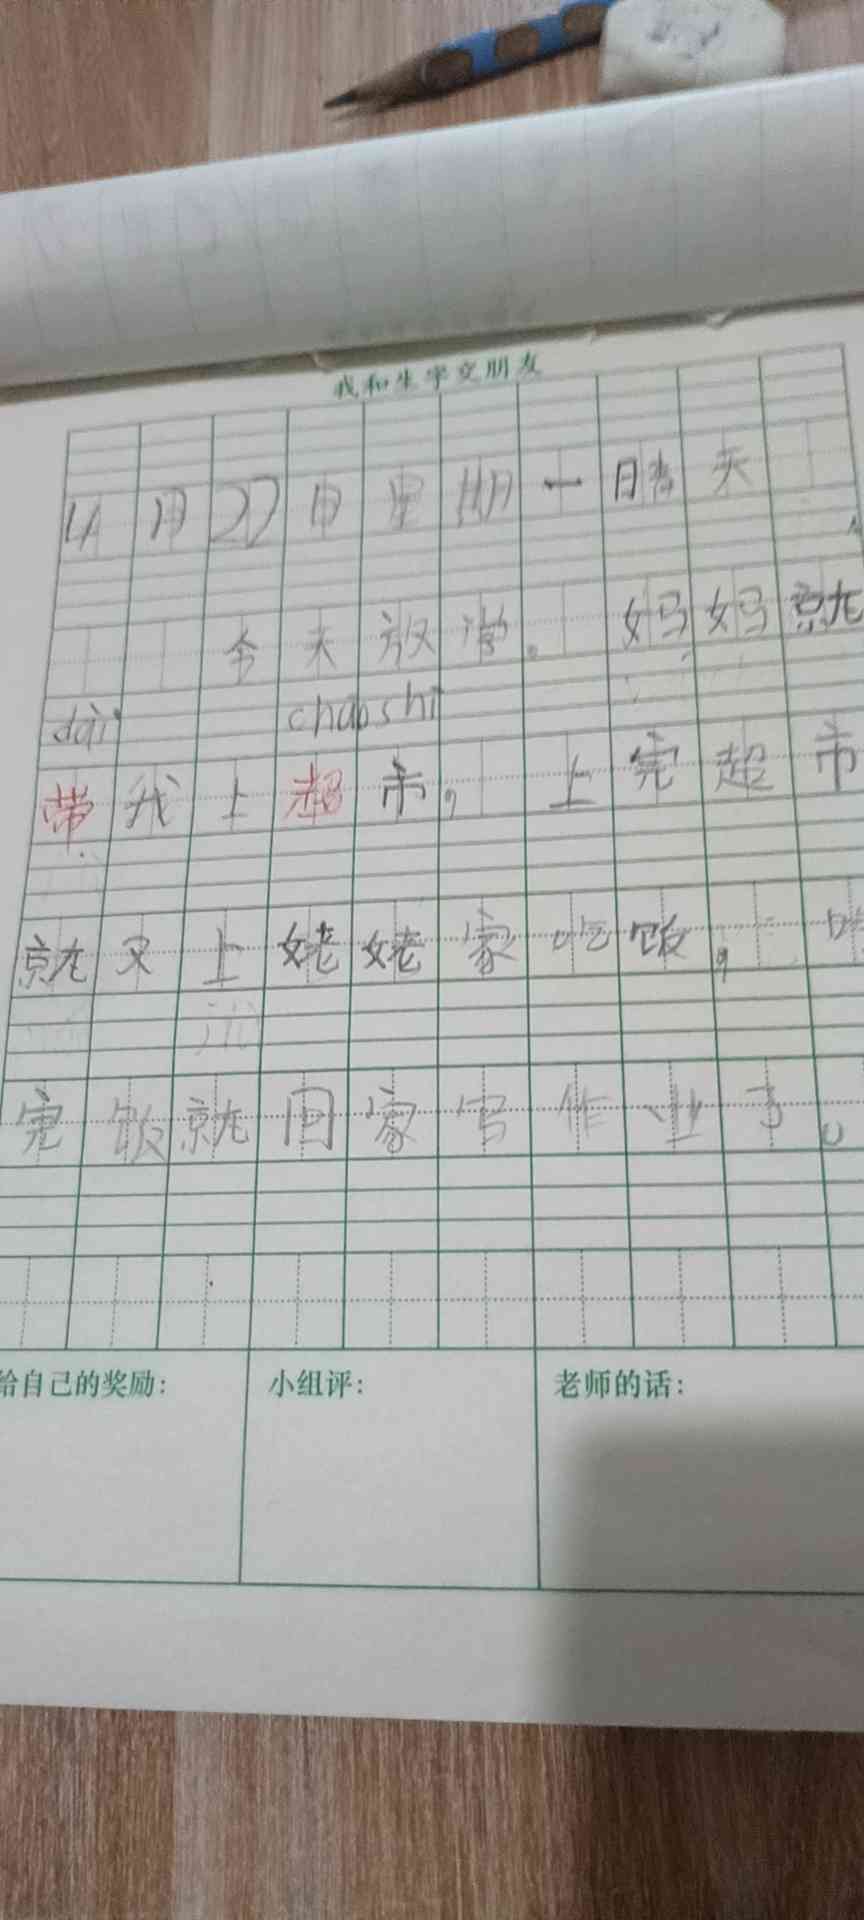 我和生字交朋友
4月27日星期一晴天
今天放学。妈妈就
dài chāoshì
带我上超市，上完超市
就又上姥姥家吃饭，吃
完饭就回家写作业了。
给自己的奖励：
小组评：
老师的话：